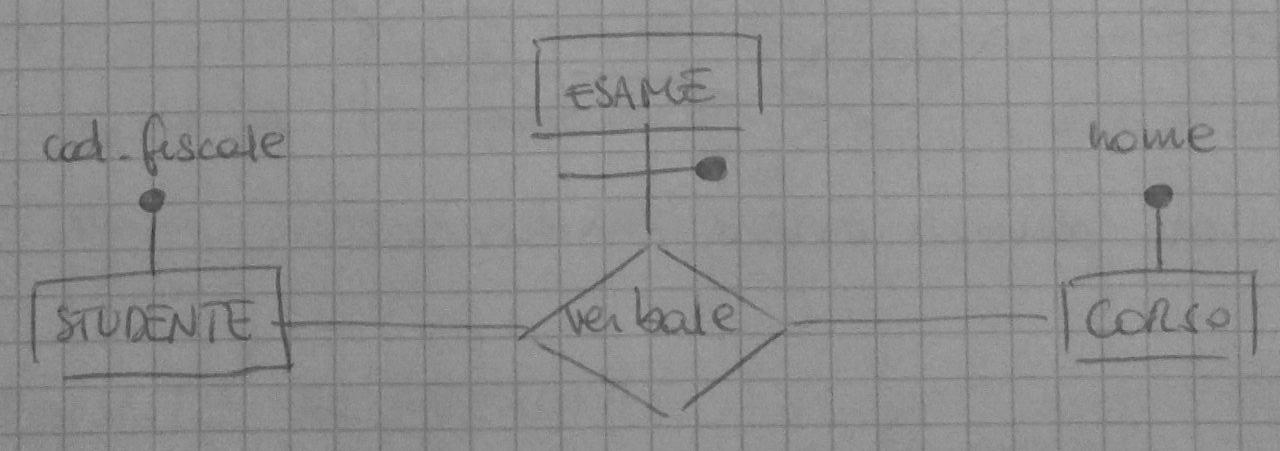 ESAME
cod. fiscale
nome
STUDENTE
verbale
CORSO